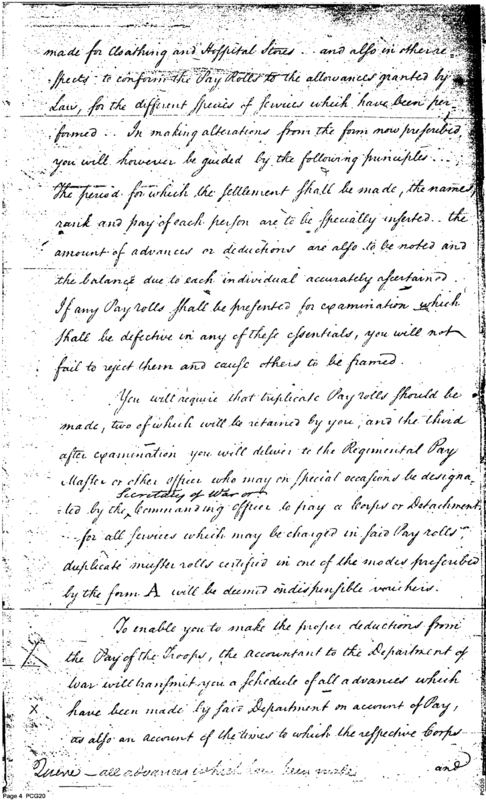 made for Cloathing and Hospital Stores .. and also in other re-
spects to conform the Pay Rolls to the allowances granted by
Law, for the different species of Services which have been per-
formed .. In making alterations from the form now prescribed
you will however be guided by the following principles ...
The period for which the settlement shall be made, the names,
rank and pay of each person are to be specially inserted .. the
amount of advances or deductions are also to be noted and
the balance due to each individual accurately ascertained
If any Pay rolls shall be presented for examination which
shall be defective in any of these essentials, you will not
fail to reject them and cause others to be framed.
You will require that triplicate Pay rolls should be
made, two of which will be retained by you, and the third
after examination you will deliver to the Regimental Pay
Master or other officer who may on special occasions be designa-
Secretary of War or
ted by the Commanding Officer to pay a Corps or Detachment
.. for all services which may be charged in said Pay rolls
duplicate muster rolls certified in one of the modes prescribed
by the form A will be deemed indispensible vouchers.
To enable you to make the proper deductions from
the Pay of the Troops, the accountant to the Department of
War will transmit you a Schedule of all advances which
x have been made by said Department on account of Pay,
as also an account of the times to which the respective Corps
Quere - all advances which have been made and
Page 4 PCG20